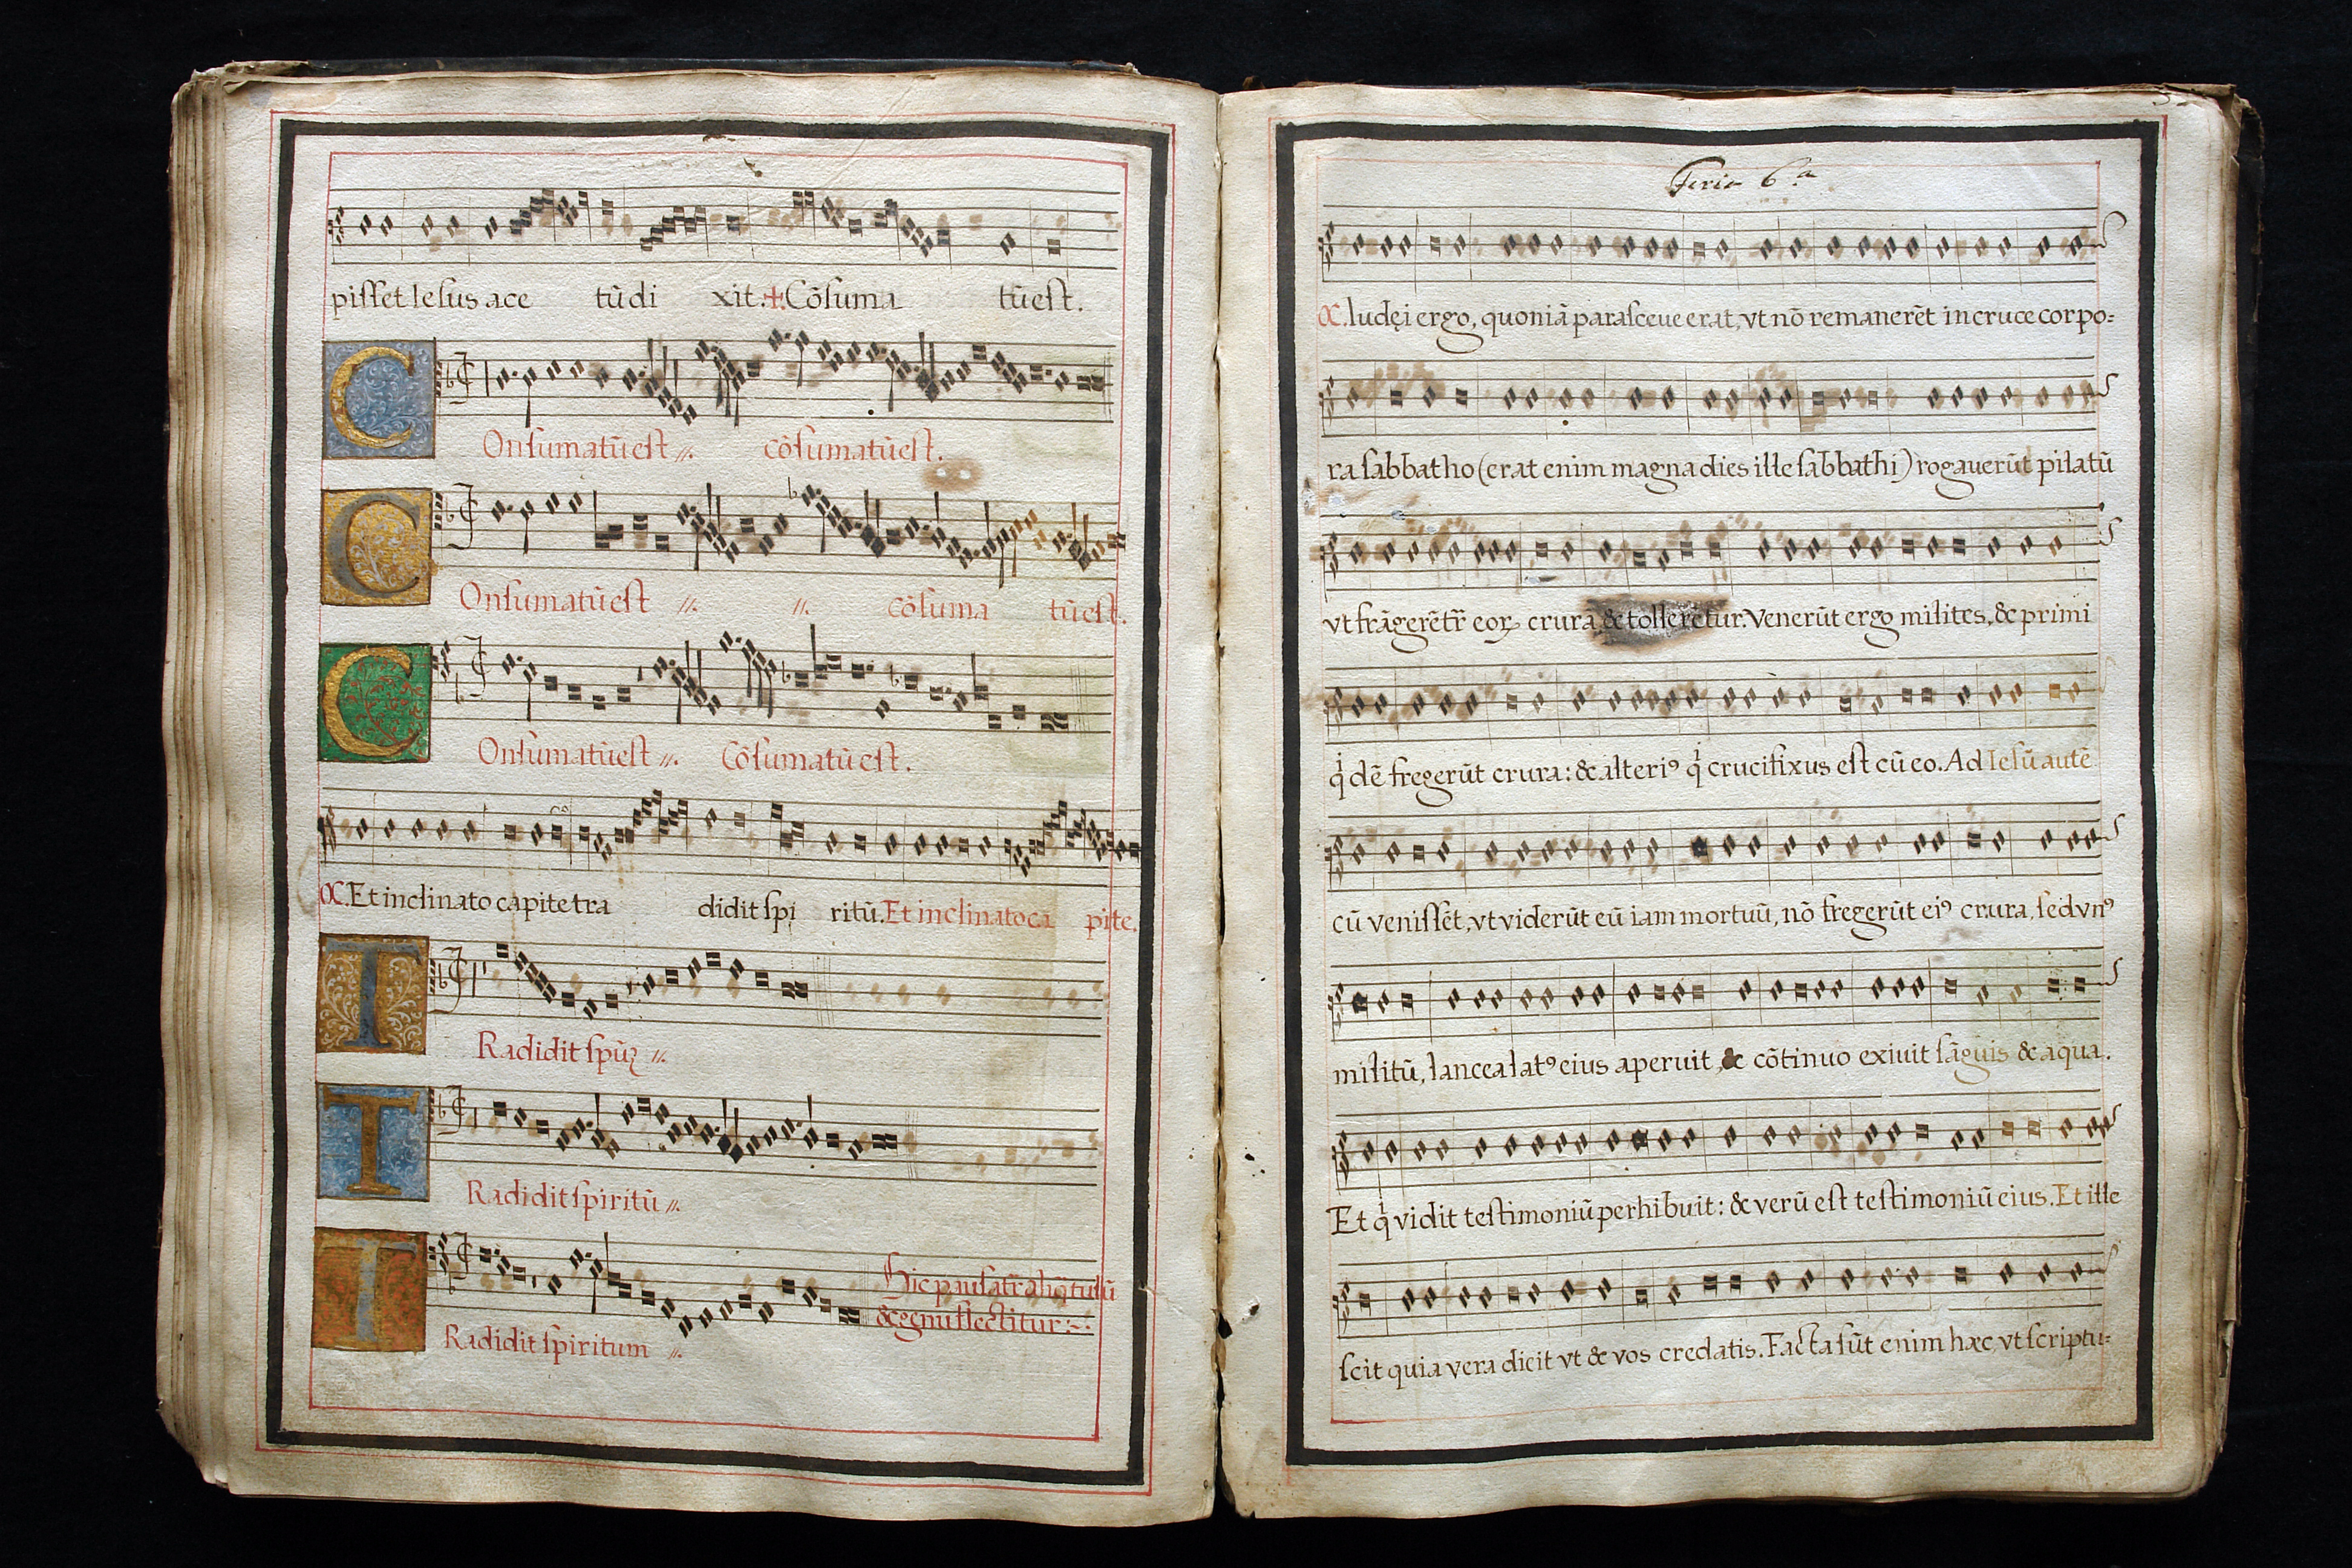 pisset Iesus ace tũ di xit. + Cõsuma tũ est.
COnsumatũ est //. cõsumatũ est.
COnsumatũ est //. //. cõsuma tũ est.
COnsumatũ est //. Cõsumatũ est.
Et inclinato capite tra didit spi ritũ. Et inclinato ca pite.
TRadidit
TRadidit spiritũ //.
Hic pausat̃ aliq̃tulũ
& genuflectitur
TRadidit spiritum //.
Feria 6.ª
Iudęi ergo, quoniã parasceue erat, vt nõ remanerẽt in cruce corpo-
ra sabbatho (erat enim magna dies ille sabbathi) rogauerũt pilatũ
vt frãgerẽt̃ eoꝝ crura & tollerẽtur. Venerũt ergo milites, & primi
q̇ dẽ fregerũt crura: & alteriꝰ q̇ crucifixus est cũ eo. Ad Iesũ autẽ
cũ venissẽt, vt viderũt eũ iam mortuũ, nõ fregerũt eiꝰ crura, sed vnꝰ
militũ, lancea latꝰ eius aperuit, & cõtinuo exiuit sãguis & aqua.
Et q̇ vidit testimoniũ perhibuit: & verũ est testimoniũ eius. Et ille
scit quia vera dicit vt & vos credatis. Facta sũt enim hæc, vt scriptu-